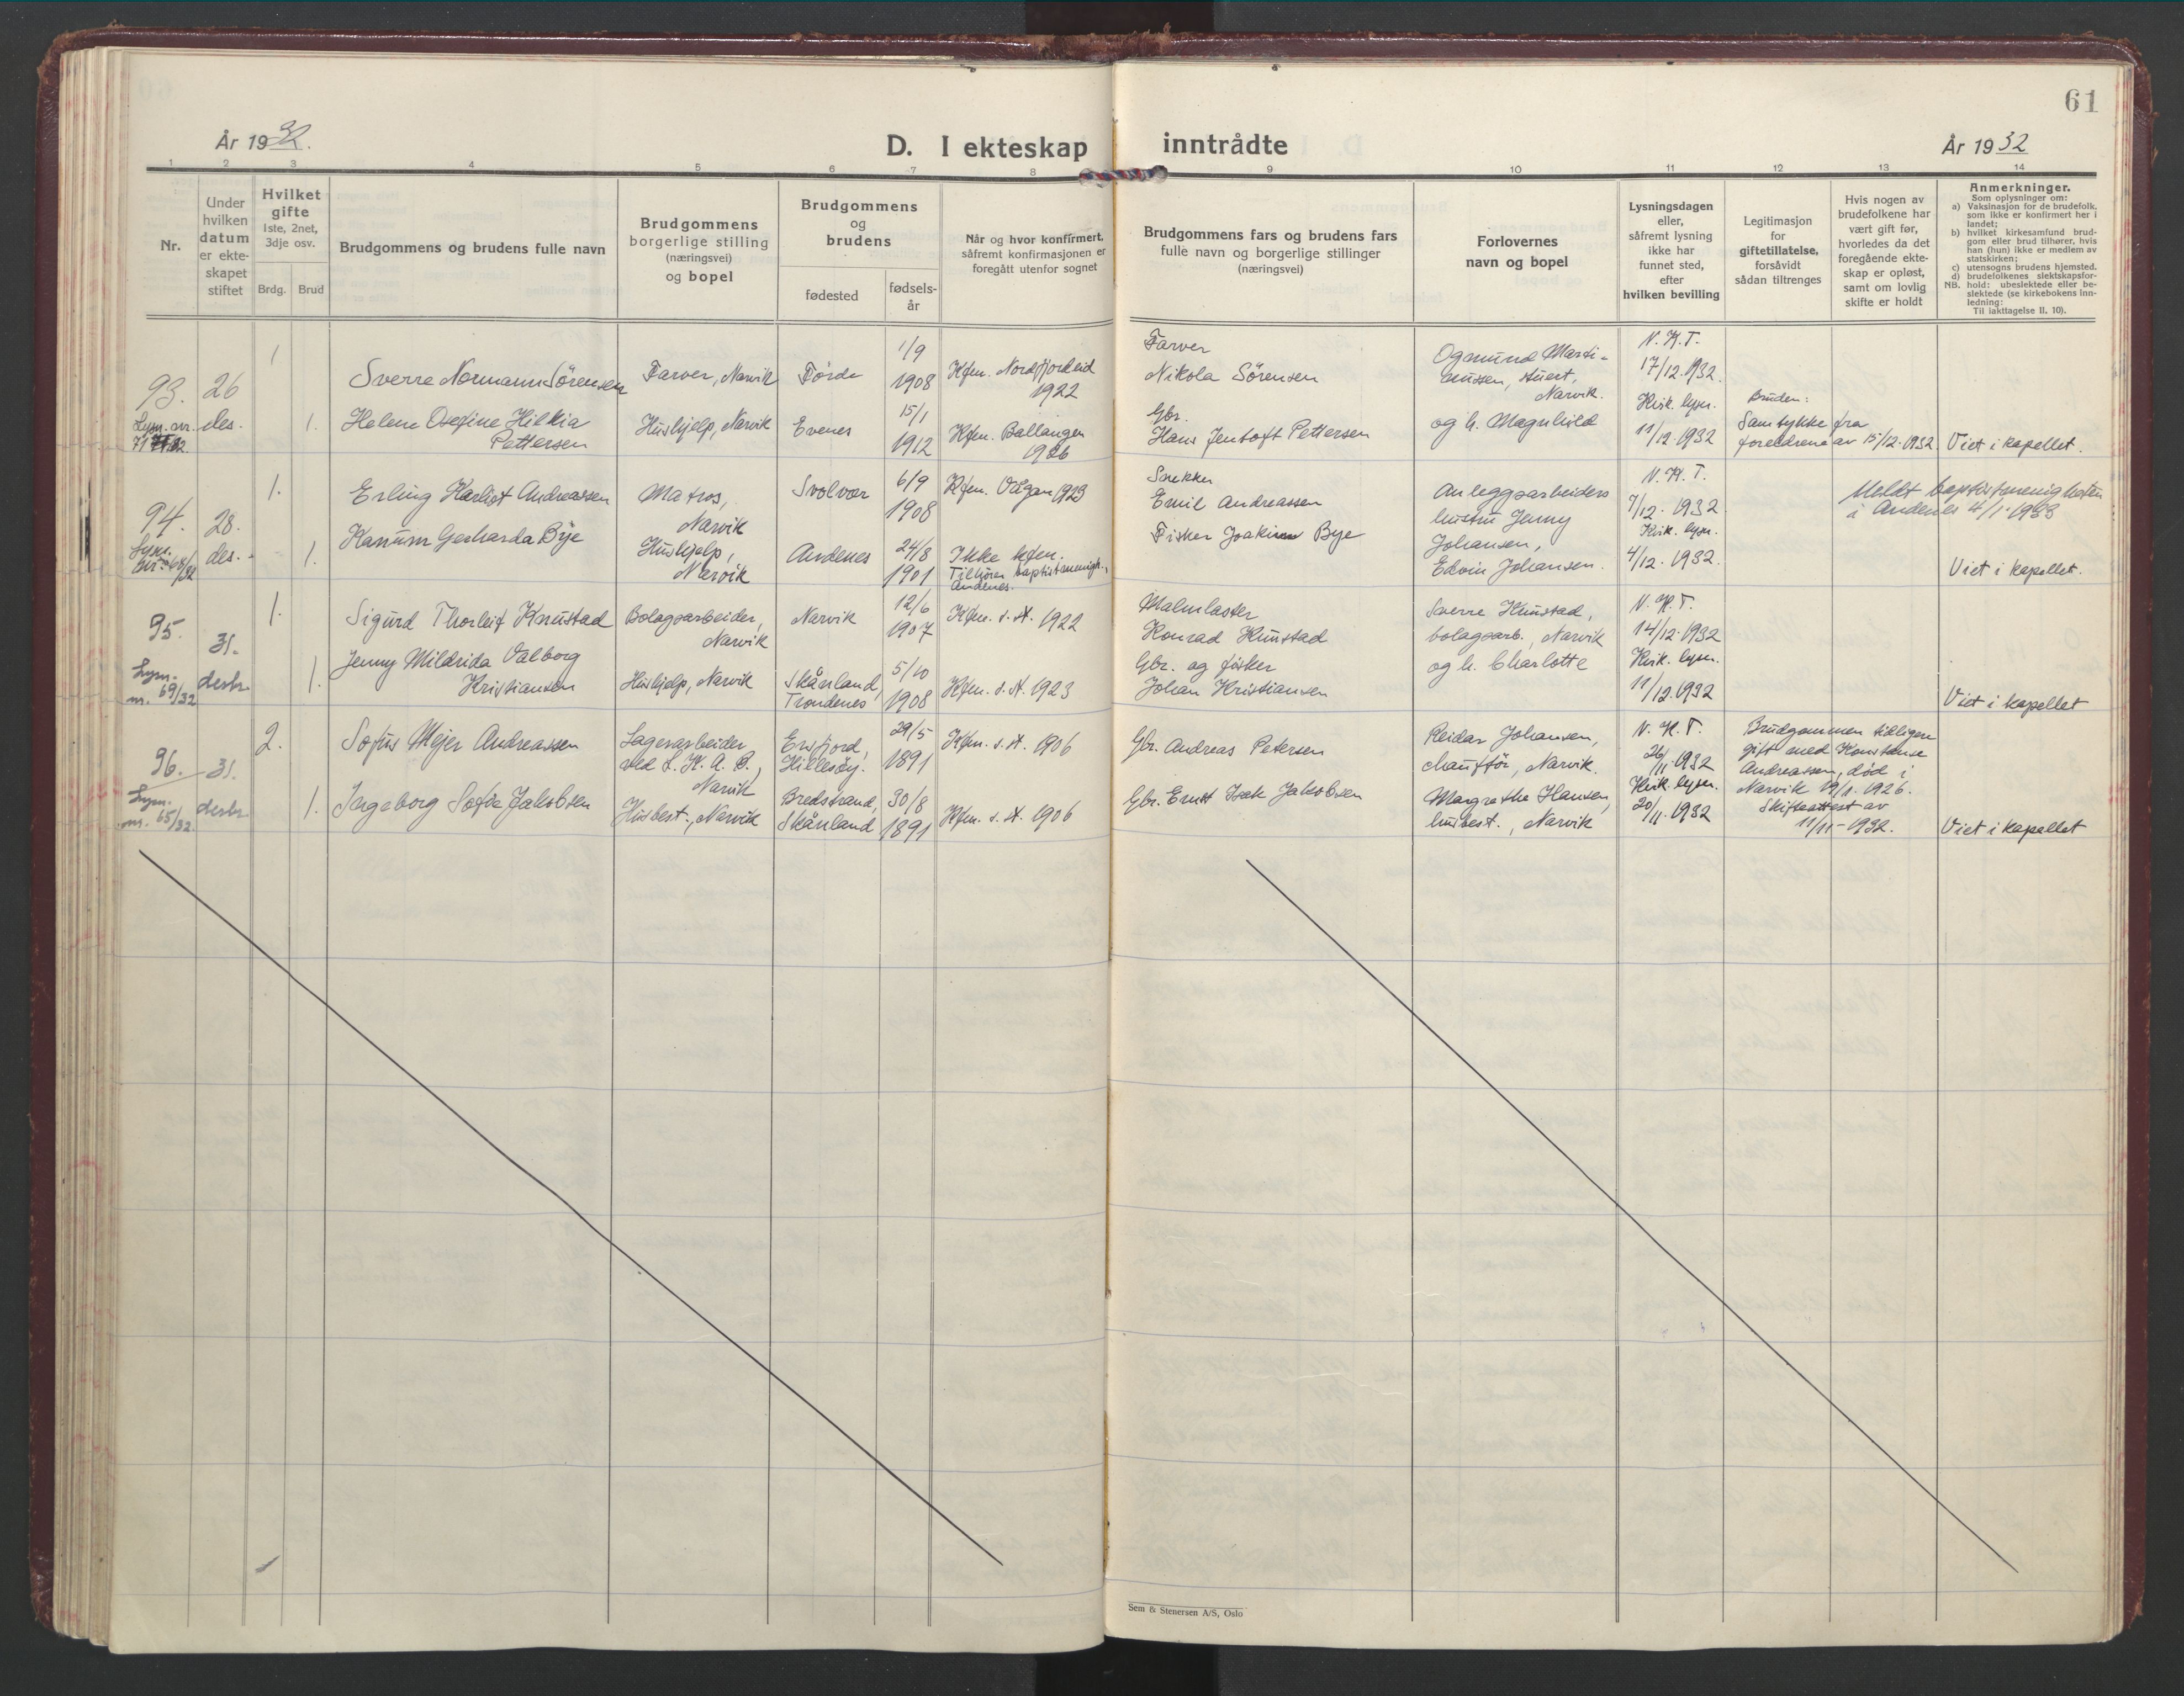 61
År 1932.
D. I ekteskap inntrådte
År 1932
1 2 3 4 5 6 7 8 9 10 11 12 13 14
Nr.
Under
hvilken
datum
er ekte-
skapet
stiftet
Hvilket
gifte
1ste, 2net,
3dje osv.
Brdg. Brud
Brudgommens og brudens fulle navn
Brudgommens
borgerlige stilling
(næringsvei)
og bopel
Brudgommens
og
brudens
fødested
fødsels-
år
Når og hvor konfirmert,
såfremt konfirmasjonen er
foregått utenfor sognet
Brudgommens fars og brudens fars
fulle navn og borgerlige stillinger
(næringsvei)
Forlovernes
navn og bopel
Lysningsdagen
eller,
såfremt lysning
ikke har
funnet sted,
efter
hvilken bevilling
Legitimasjon
for
giftetillatelse,
forsåvidt
sådan tiltrenges
Hvis nogen av
brudefolkene har
vært gift før,
hvorledes da det
foregående ekte-
skap er opløst,
samt om lovlig
skifte er holdt
Anmerkninger.
Som oplysninger om:
a) Vaksinasjon for de brudefolk,
som ikke er konfirmert her i
landet;
b) hvilket kirkesamfund brud-
gom eller brud tilhører, hvis
han (hun) ikke er medlem av
statskirken;
c) utensogns brudens hjemsted.
d) brudefolkenes slektskapsfor-
NB. hold: ubeslektede eller be-
slektede (se kirkebokens inn-
ledning:
Til iakttagelse II. 10).
93.
Lysn. nr.
71
26
des.
1
1.
Sverre Normann Sörensen
Helene Osefine Hilkia
Pettersen
Farver, Narvik
Hushjelp, Narvik
Förde
Evenes
1/9
1908
15/1
1912
Kfen. Nordfjordeid
1922
Kfen. Ballangen
1926
Farver
Nikola Sörensen
Gbr.
Hans Jentoft Pettersen
Ogmund Marti-
nussen, stuert,
Narvik.
og h. Magnhild
N. K. T.
17/12.1932.
Kirk. lysn.
11/12.1932
Bruden:
Samtykke fra
foreldrene av 15/12.1932.
Viet i kapellet.
94.
Lysn.
nr. 68/32
28.
des.
1.
1.
Erling Harliot Andreassen
Kanum Gerharda Bye
Matros,
Narvik
Hushjelp,
Narvik
Svolvær
Andenes
6/9
1908
24/8
1901
Kfen. Vågan 1923
Ikke kfen.
Tilhörer baptistmenigh.,
Andenes.
Snekker
Emil Andreassen
Fisker Joakim Bye
Anleggsarbeiders
hustru Jenny
Johansen,
Edvin Johansen.
N. K. T.
7/12. 1932
Kirk. lysn.
4/12. 1932.
Meldt baptistmenigheten
i Andenes 4/1. 1933
Viet i kapellet.
95.
Lysn.
nr. 69/32
31.
desbr.
1.
1.
Sigurd Thorleif Knustad
Jenny Mildrida Valborg
Kristiansen
Bolagsarbeider,
Narvik
Hushjelp, Narvik
Narvik
Skånland,
Trondenes
12/6
1907
5/10
1908
Kfen. s. st. 1922
Kfen. s. st. 1923
Malmlaster
Konrad Knustad
Gbr. og fisker
Johan Kristiansen
Sverre Knustad,
bolagsarb., Narvik
og h. Charlotte
N. K. T.
14/12.1932
Kirk. lysn.
11/12.1932
Viet i kapellet
96.
Lysn.
nr. 65/32
31.
desbr.
2.
1.
Sofus Mejer Andreassen
Ingeborg Sofie Jakobsen
Lagerarbeider
ved L. K. A. B.,
Narvik
Husbest., Narvik
Ersfjord,
Hillesöy.
Bredstrand,
Skånland
29/5
1891
30/8
1891
Kfen. s. st. 1906
Kfen. s. st. 1906
Gbr. Andreas Petersen
Gbr. Ernst Isak Jakobsen
Reidar Johansen,
chauffför, Narvik.
Margrethe Hansen,
husbest., Narvik
N. K. T.
26/11.1932
Kirk. lysn.
20/11.1932
Brudgommen tidligere
gift med Konstanse
Andreassen, död i
Narvik 19/1. 1926.
Skifteattest av
11/11-1932.
Viet i kapellet
Sem & Stenersen A/S, Oslo